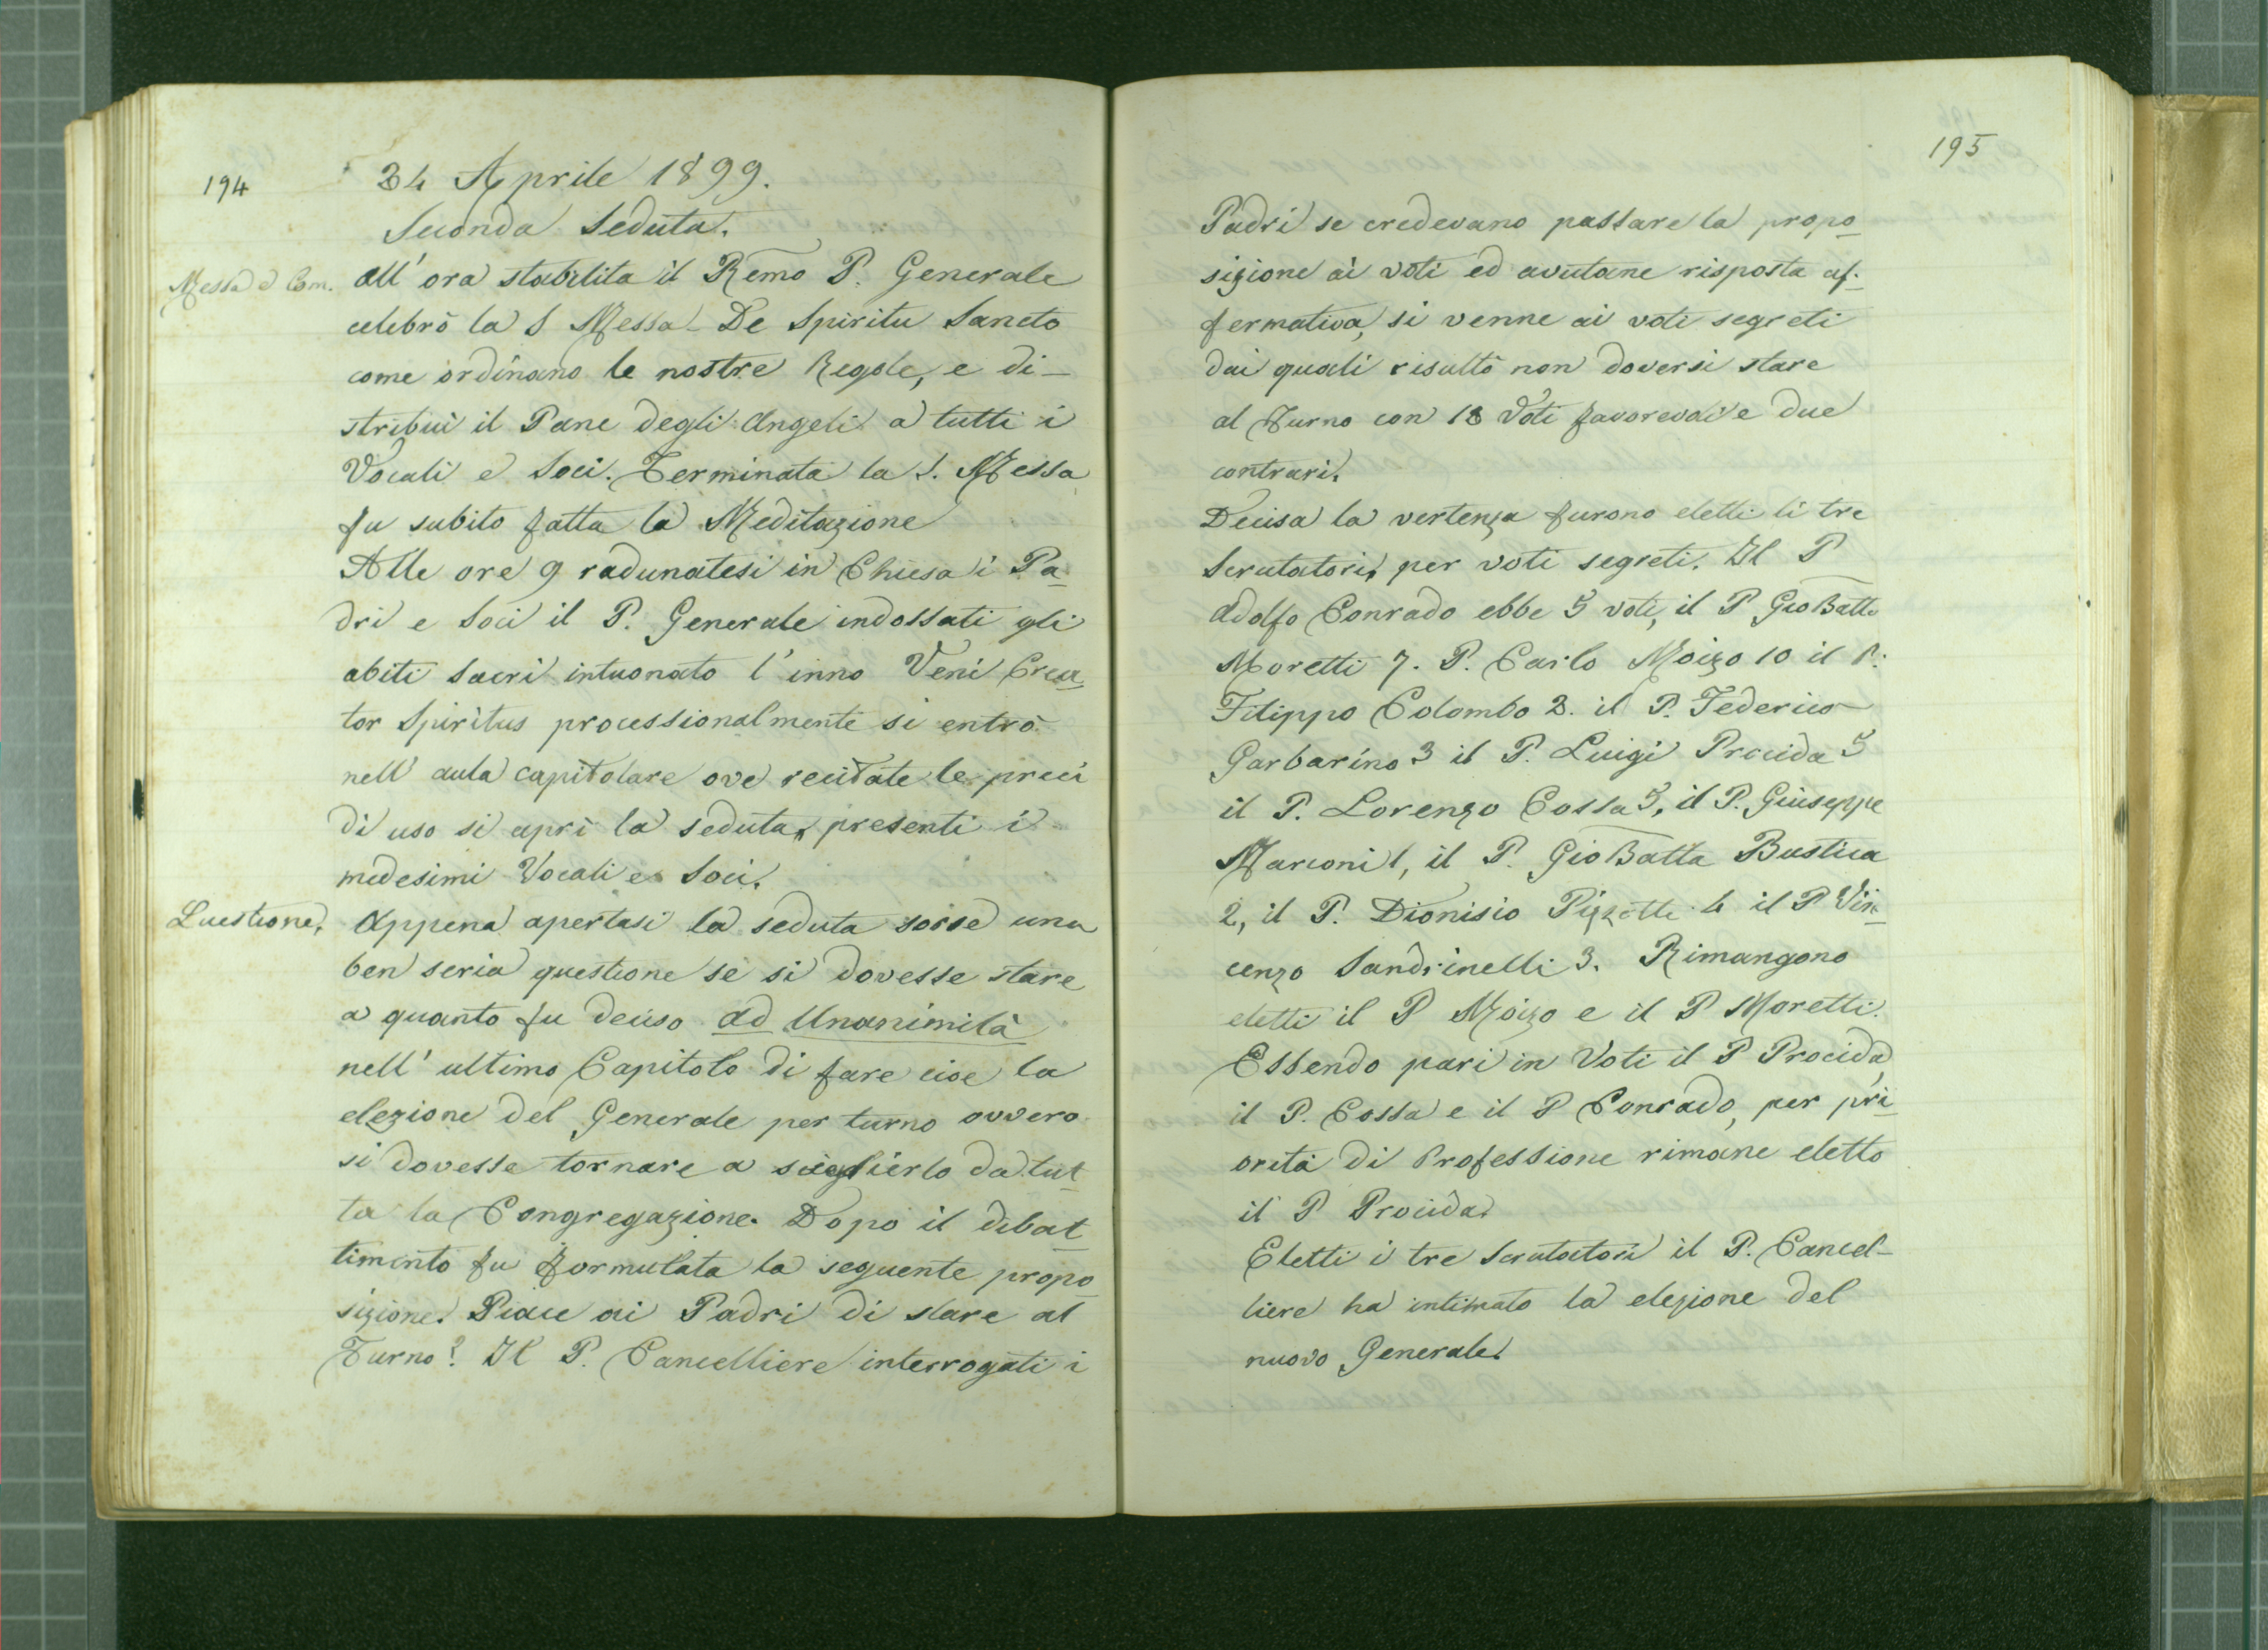 194
24 Aprile 1899.
Seconda Seduta.
Messa e Com.
All' ora stabilita il Remo P. Generale
celebrò la S Messa De Spiritu Sancto
come ordinano le nostre Regole, e di-
stribuì il Pane degli Angeli a tutti i
Vocali e Soci. Terminata la S. Messa
fu subito fatta la Meditazione
Alle ore 9 radunatesi in Chiesa i Pa-
dri e Soci il P. Generale indossati gli
abiti Sacri intuonato l'inno Veni Crea-
tor Spiritus processionalmente si entrò
nell' aula capitolare ove recitate le preci
di uso si aprì la seduta, presenti i
medesimi Vocali e Soci.
Questione.
Appena apertasi la seduta sorse una
ben seria questione se si dovesse stare
a quanto fu deciso ad Unanimità
nell' ultimo Capitolo di fare cioe la
elezione del Generale per turno ovvero
si dovesse tornare a sciegliérlo da tut-
ta la Congregazione. Dopo il dibat-
timento fu formulata la seguente propo-
sizione. Piace ai Padri di stare al
Turno? Il P. Cancelliere interrogati i
195
Padri se credevano passare la propo-
sizione ai voti ed avutane risposta af-
fermativa, si venne ai voti segreti
dai quali risultò non doversi stare
al Turno con 18 Voti favorevoli e due
contrari.
Decisa la vertenza furono eletti li tre
Scrutatori, per voti segreti. Il P
Adolfo Conrado ebbe 5 voti, il P GioBatta
Moretti 7. P. Carlo Moizo 10 il P.
Filippo Colombo 2. il P. Federico
Garbarino 3 il P. Luigi Procida 5
il P. Lorenzo Cossa 5, il P. Giuseppe
Marconi 1, il P. GioBatta Bustica
2, il P. Dionisio Pizzotti 4 il P Vin-
cenzo Sandrinelli 3. Rimangono
eletti il P Moizo e il P Moretti.
Essendo pari in Voti il P Procida,
il P. Cossa e il P Conrado, per pri-
orità di Professione rimane eletto
il P Procida.
Eletti i tre Scrutatori il P. Cancel-
liere ha intimato la elezione del
nuovo Generale.